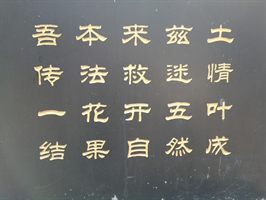 吾本来兹土
传法救迷情
一花开五叶
结果自然成